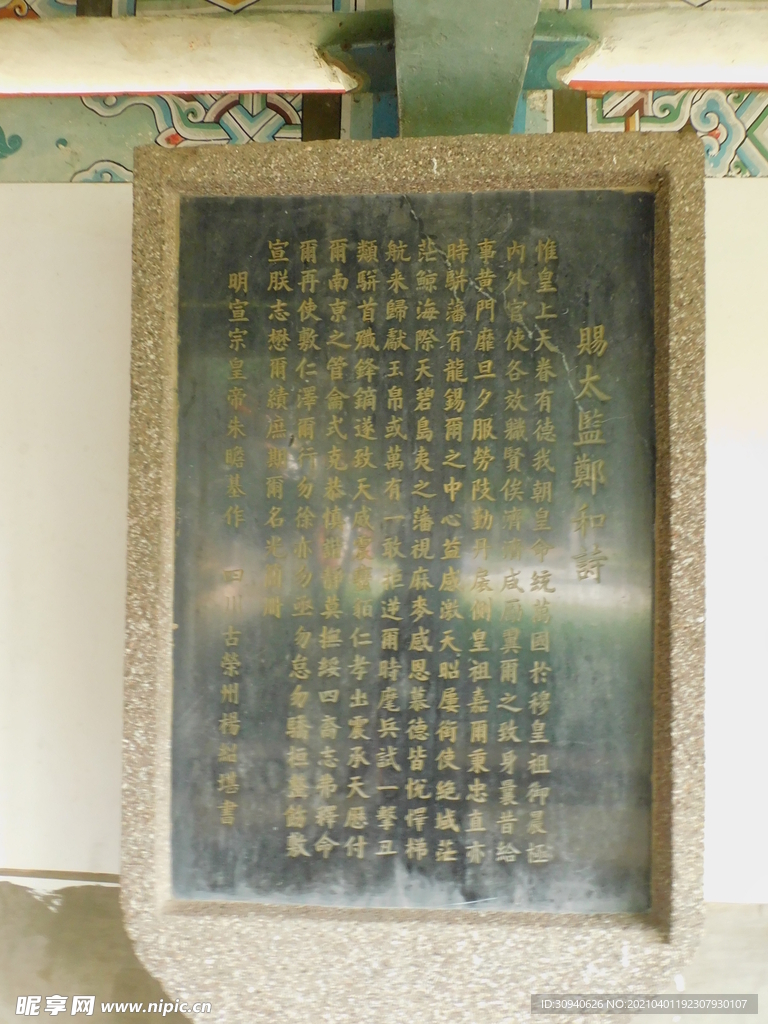 賜太監鄭和詩
惟皇上天眷有德我朝皇命統萬國於穆皇祖御晨極
內外官使各效職賢俟濟濟咸爾翼爾之致身曩昔給
事黃門靡旦夕服勞陵勤丹扆側皇祖嘉爾秉忠直亦
時駢藩有龍錫爾之中心益感激天昭屢銜使絕域茫
茫鯨海際天碧島夷之藩視麻麥感恩慕德皆悅懌梯
航来歸獻玉帛或萬有一敢拒逆爾時麾兵試一擊丑
類駢首殲鋒鏑遂致天威震蠻貊仁孝出震承天歷付
爾南京之管龠式克恭慎靜莫撫綏四裔志弗釋命
爾再使敷仁澤爾行勿徐亦勿亟勿怠勿驕恒整飭敷
宣朕志懋爾績庶期爾名光簡冊
明宣宗皇帝朱瞻基作 四川古榮州楊書
昵享网 www.nipic.cn
ID:30940626 NO:20210401192307930107